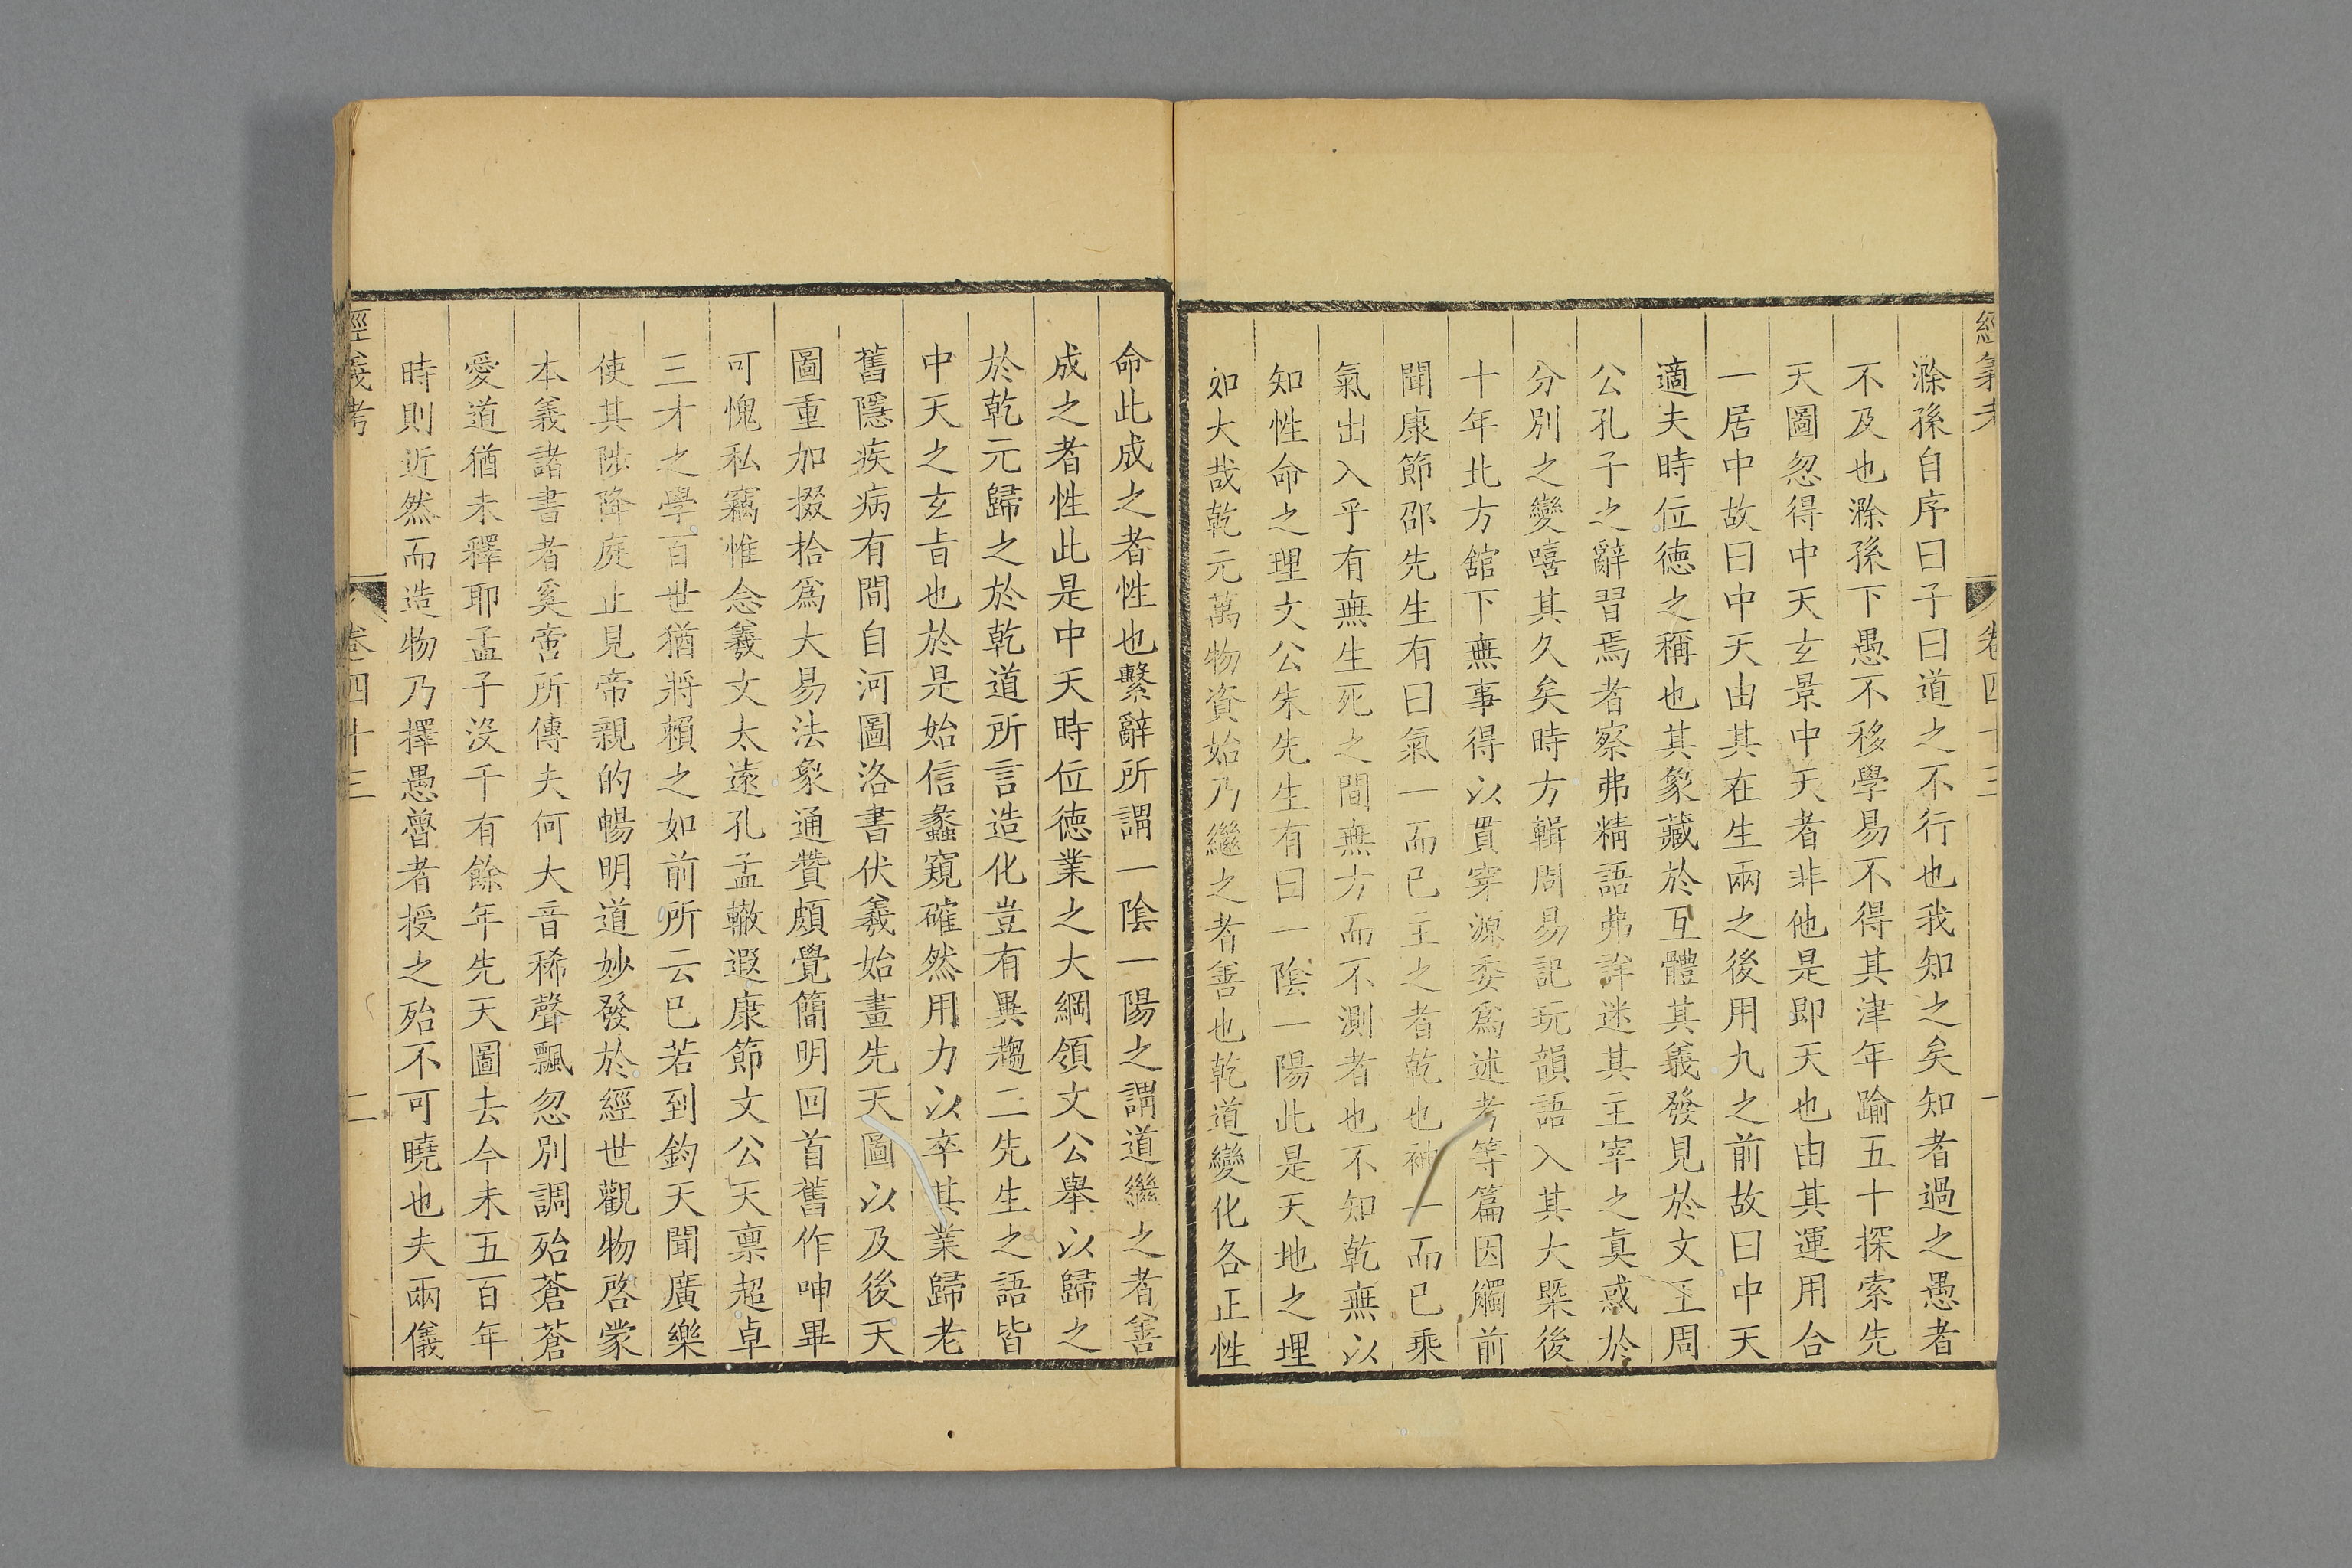 經義考 卷四十三 一
滁孫自序曰子曰道之不行也我知之矣知者過之愚者
不及也滁孫下愚不移學易不得其津年踰五十探索先
天圖忽得中天玄景中天者非他是即天也由其運用合
一居中故曰中天由其在生兩之後用九之前故曰中天
適夫時位德之稱也其象藏於互體其義發見於文王周
公孔子之辭習焉者察弗精語弗詳迷其主宰之真惑於
分別之變嘻其久矣時方輯周易記玩韻語入其大槩後
十年北方舘下無事得以貫穿源委爲述考等篇因觸前
聞康節邵先生有曰氣一而已主之者乾也神一而已乘
氣出入乎有無生死之間無方而不測者也不知乾無以
知性命之理文公朱先生有曰一陰一陽此是天地之理
如大哉乾元萬物資始乃繼之者善也乾道變化各正性
命此成之者性也繫辭所謂一陰一陽之謂道繼之者善
成之者性此是中天時位德業之大綱領文公舉以歸之
於乾元歸之於乾道所言造化豈有異趨二先生之語皆
中天之玄旨也於是始信蠡窺確然用力以卒其業歸老
舊隱疾病有間自河圖洛書伏羲始畫先天圖以及後天
圖重加掇拾爲大易法象通贊頗覺簡明回首舊作呻畢
可愧私竊惟念羲文太遠孔孟轍遐康節文公天禀超卓
三才之學百世猶將賴之如前所云已若到鈞天聞廣樂
使其陟降庭止見帝親的暢明道妙發於經世觀物啓蒙
本義諸書者奚啻所傳夫何大音稀聲飄忽別調殆蒼蒼
愛道猶未釋耶孟子没千有餘年先天圖去今未五百年
時則近然而造物乃擇愚魯者授之殆不可曉也夫兩儀
經義考 卷四十三 二